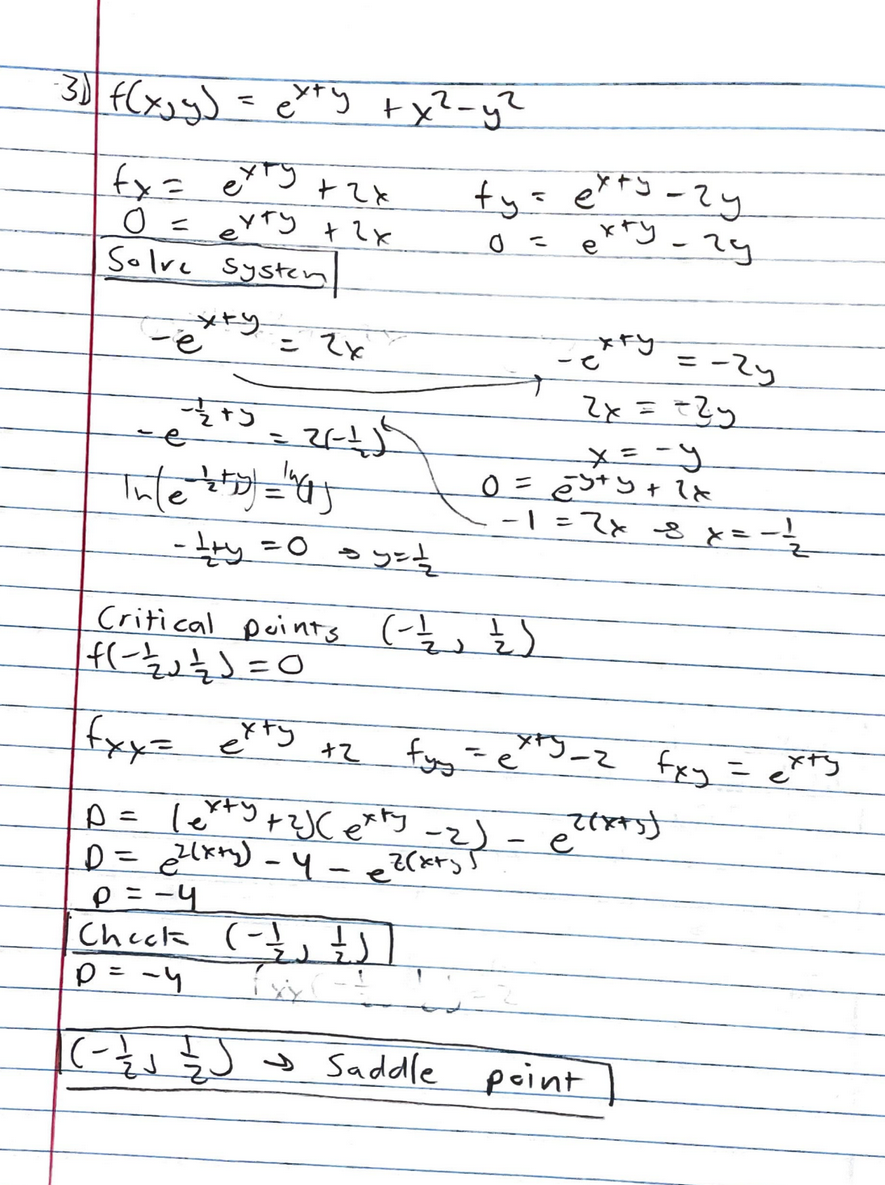 3) f(x,y) = e^{x+y} + x^2 - y^2
f_x = e^{x+y} + 2x f_y = e^{x+y} - 2y
0 = e^{x+y} + 2x 0 = e^{x+y} - 2y
Solve system
-e^{x+y} = 2x -e^{x+y} = -2y
2x = -2y
-e^{-1/2+y} = 2(-1/2) x = -y
ln(e^{-1/2+y}) = ln(1) 0 = e^{-y+y} + 2x
-1 = 2x → x = -1/2
-1/2+y = 0 → y = 1/2
Critical points (-1/2, 1/2)
f(-1/2, 1/2) = 0
f_{xx} = e^{x+y} + 2 f_{yy} = e^{x+y} - 2 f_{xy} = e^{x+y}
D = (e^{x+y} + 2)(e^{x+y} - 2) - e^{2(x+y)}
D = e^{2(x+y)} - 4 - e^{2(x+y)}
D = -4
Check (-1/2, 1/2)
D = -4
(-1/2, 1/2) → Saddle point